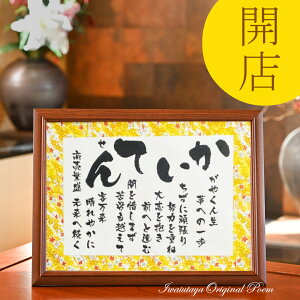 開店
かいてん
せ
がやく人生
夢への一歩
ちずに頑張り
努力を重ね
大志を抱き
前へと進む
間を惜しまず
苦労も越えて
客万来
晴れやかに
商売繁盛 未来へ続く
Iwatutaya Original Poem